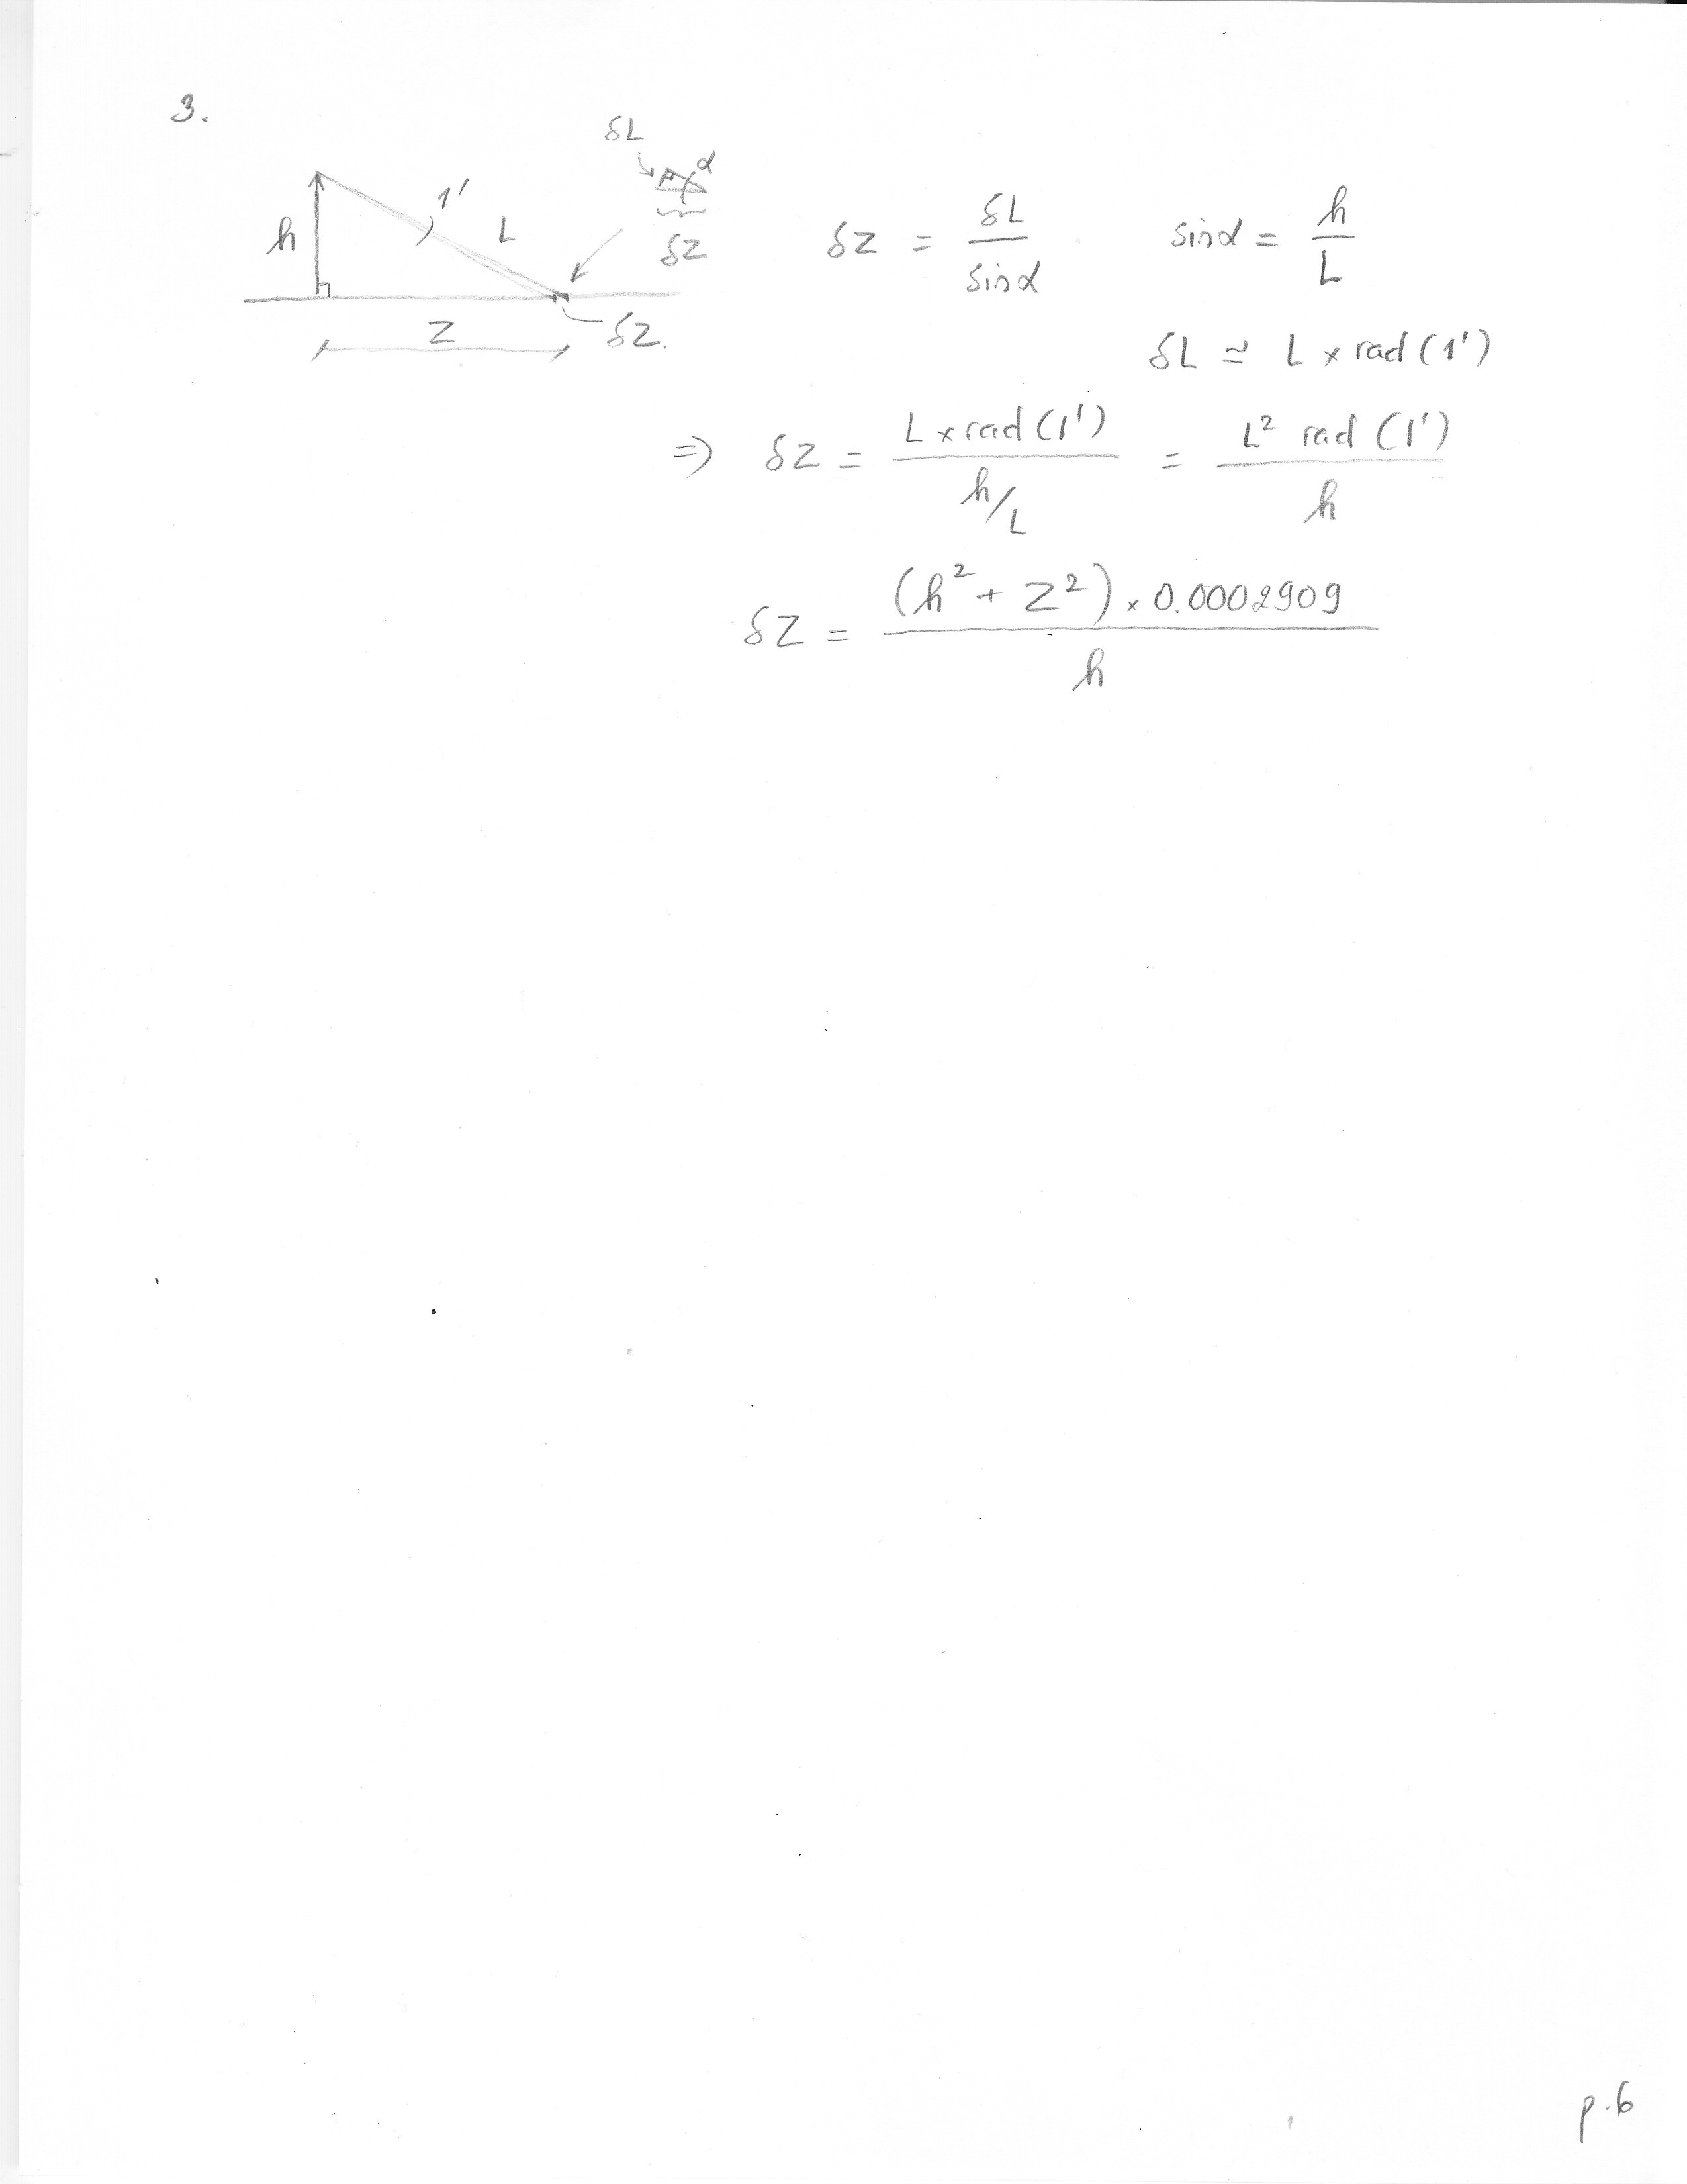 3.
δL
α
δz
1'
h
L
z
δz.
δz = δL / sinα sinα = h / L
δL ≃ L × rad (1')
⇒) δz = L × rad (1') / h/L = L² rad (1') / h
δz = (h² + z²) × 0.0002909 / h
p.6